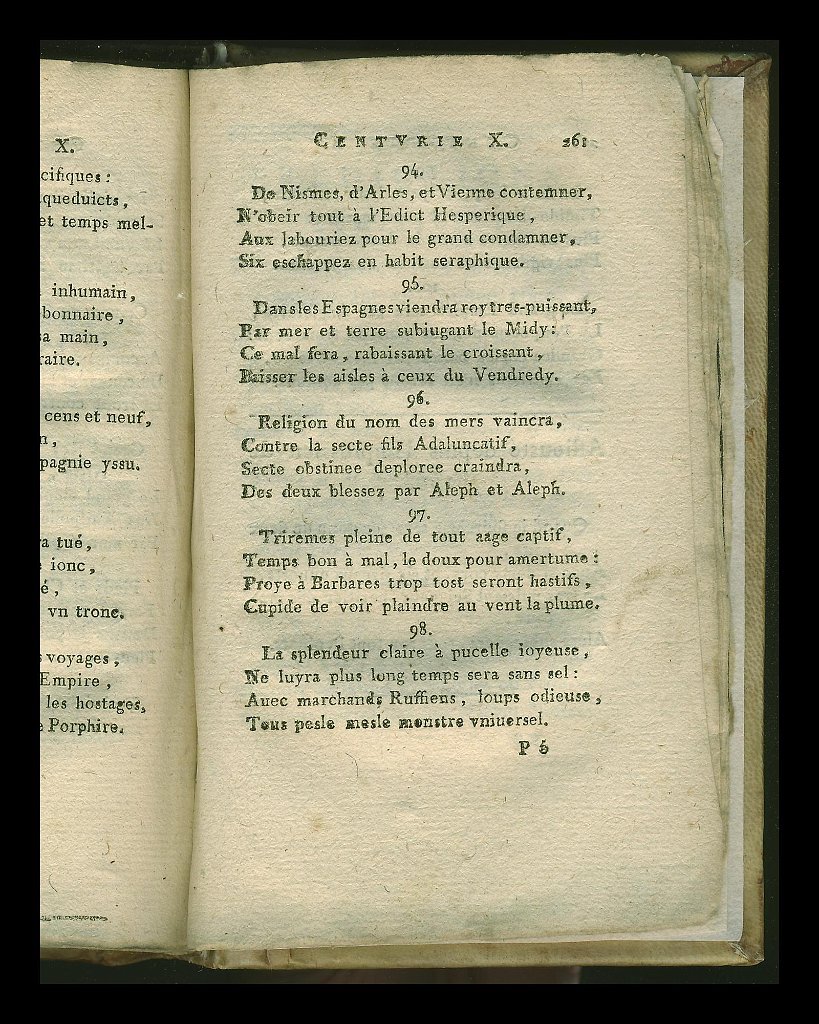 X.
cifiques :
queduicts ,
et temps mel-
inhumain,
bonnaire ,
a main,
raire.
cens et neuf,
n ,
pagnie yssu.
a tué,
ionc ,
é ,
vn tronc.
voyages ,
Empire ,
les hostages,
Porphire.
CENTVRIE X. 261
94.
De Nismes, d'Arles, et Vienne contemner,
N'obeir tout à l'Edict Hesperique ,
Aux labouriez pour le grand condamner,
Six eschappez en habit seraphique.
95.
Dans les Espagnes viendra roy tres-puissant,
Par mer et terre subiugant le Midy :
Ce mal fera , rabaissant le croissant ,
Baisser les aisles à ceux du Vendredy.
96.
Religion du nom des mers vaincra ,
Contre la secte fils Adaluncatif ,
Secte obstinee deploree craindra ,
Des deux blessez par Aleph et Aleph.
97.
Triremes pleine de tout aage captif ,
Temps bon à mal , le doux pour amertume :
Proye à Barbares trop tost seront hastifs ,
Cupide de voir plaindre au vent la plume.
98.
La splendeur claire à pucelle ioyeuse ,
Ne luyra plus long temps sera sans sel :
Auec marchands Ruffiens , loups odieuse ,
Tous pesle mesle monstre vniuersel.
P 6